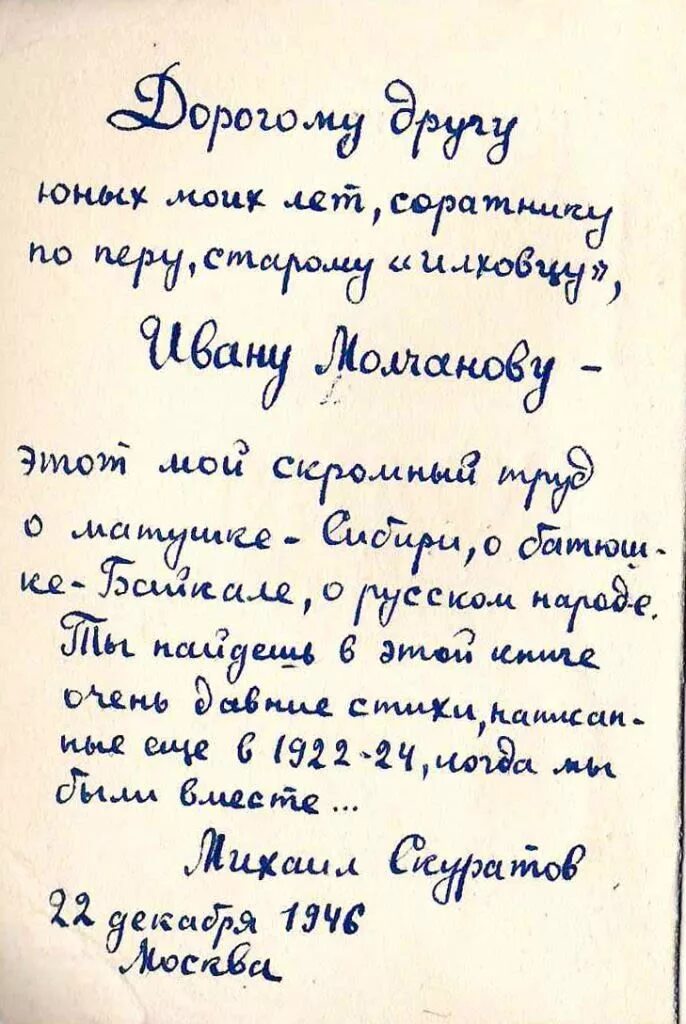 Дорогому другу
юных моих лет, соратнику
по перу, старому «илховцу»,
Ивану Молчанову –
этот мой скромный труд
о матушке-Сибири, о батюш-
ке-Байкале, о русском народе.
Ты найдешь в этой книге
очень давние стихи, написан-
ные еще в 1922-24, когда мы
были вместе...
Михаил Скуратов
22 декабря 1946
Москва